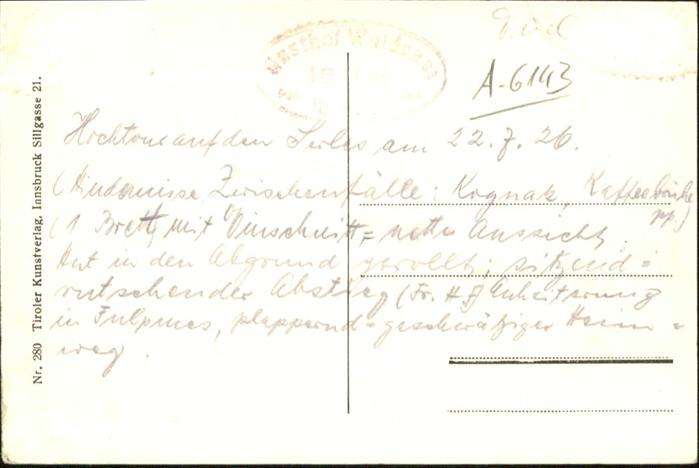 Tirol
A-6143
Gasthof
Hochtour auf den Serles am 22.7.26.
(Hindernisse, Zwischenfälle: Kognak, Kaffee
(1 Brett mit Einschnitt = nette Aussicht,
Hut in den Abgrund gerollt; sitzend =
rutschender Abstieg (Fr. H.) Anheiterung
in Fulpmes, plappernd-geschwätziger Heim =
weg.
Nr. 280 Tiroler Kunstverlag, Innsbruck Sillgasse 21.